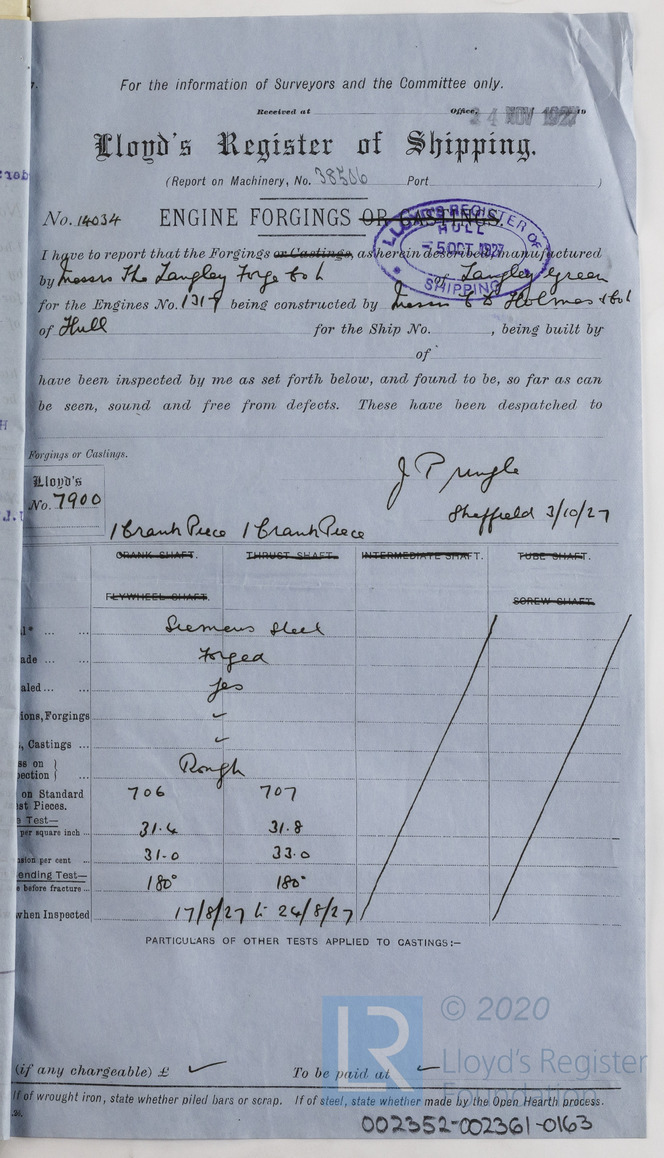 For the information of Surveyors and the Committee only.
Received at Office, 4 NOV 1927 19
Lloyd's Register of Shipping.
(Report on Machinery, No. 38506 Port )
No. 14034 ENGINE FORGINGS OR CASTINGS.
LLOYD'S REGISTER OF SHIPPING
HULL
-5 OCT. 1927
I have to report that the Forgings or Castings, as herein described, manufactured
by Messrs The Langley Forge Co L of Langley Green
for the Engines No. 1319 being constructed by Messrs C D Holmes & Co L
of Hull for the Ship No. , being built by
of
have been inspected by me as set forth below, and found to be, so far as can
be seen, sound and free from defects. These have been despatched to
Forgings or Castings.
Lloyd's
No. 7900
J Pringle
Sheffield 3/10/27
1 Crank Piece 1 Crank Piece
CRANK SHAFT. THRUST SHAFT. INTERMEDIATE SHAFT. TUBE SHAFT.
FLYWHEEL SHAFT. SCREW SHAFT.
Siemens Steel
Forged
Yes
ions, Forgings ✓
, Castings ... ✓
ss on
ection Rough
on Standard 706 707
st Pieces.
e Test—
per square inch ... 31.4 31.8
nsion per cent ... 31.0 33.0
ending Test—
e before fracture ... 180° 180°
when Inspected 17/8/27 to 24/8/27
PARTICULARS OF OTHER TESTS APPLIED TO CASTINGS:—
(if any chargeable) £ ✓ To be paid at ✓
If of wrought iron, state whether piled bars or scrap. If of steel, state whether made by the Open Hearth process.
LR
© 2020
Lloyd's Register
Foundation
002352-002361-0163